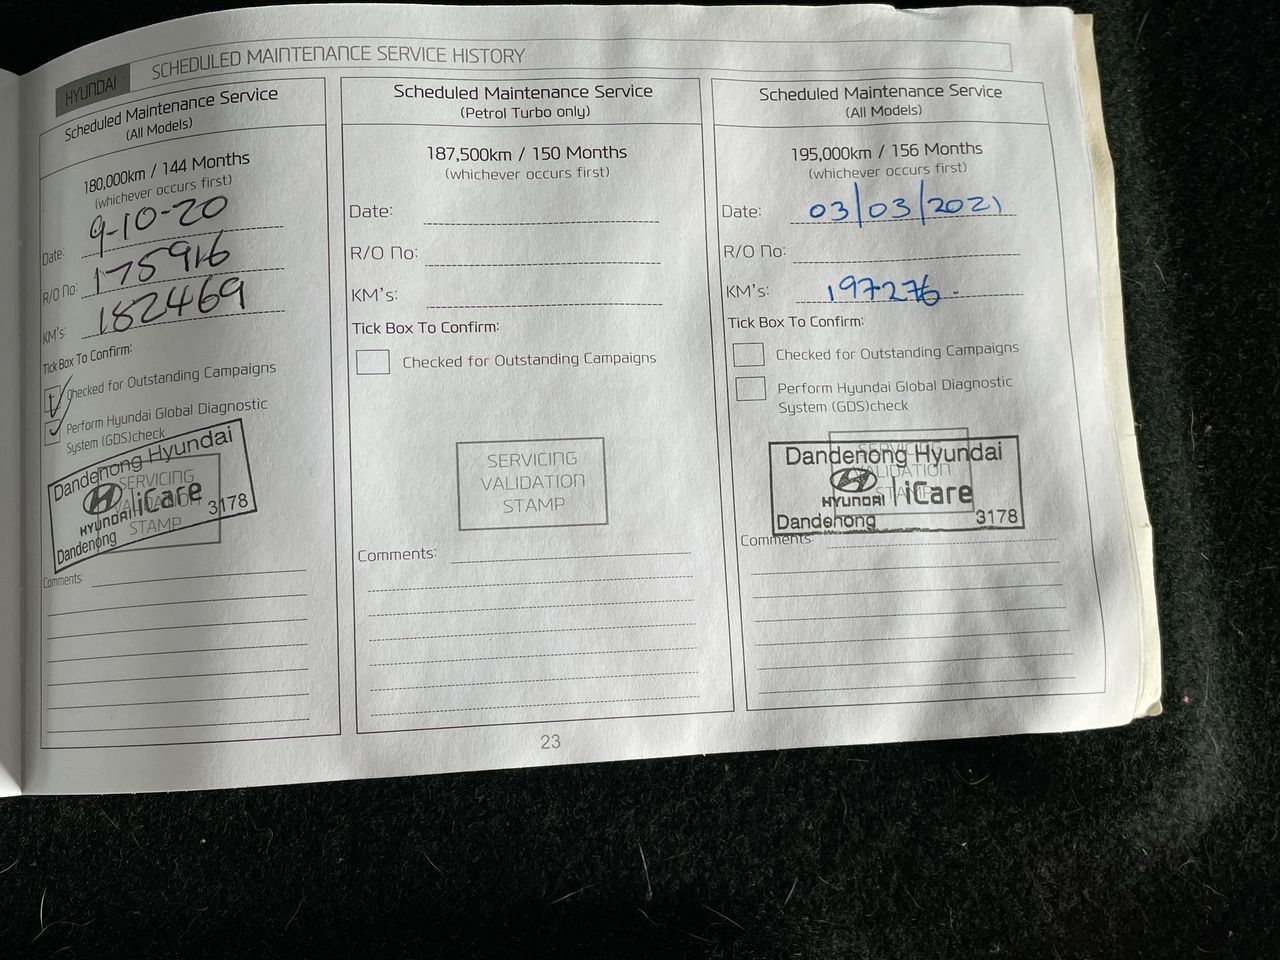 HYUNDAI
SCHEDULED MAINTENANCE SERVICE HISTORY
Scheduled Maintenance Service
(All Models)
180,000km / 144 Months
(whichever occurs first)
Date: 9-10-20
R/O No: 175916
KM's: 182469
Tick Box To Confirm:
Checked for Outstanding Campaigns
Perform Hyundai Global Diagnostic
System (GDS)check
Dandenong Hyundai
SERVICING
VALIDATION
STAMP
HYUNDAI iCare
3178
Dandenong
Comments:
Scheduled Maintenance Service
(Petrol Turbo only)
187,500km / 150 Months
(whichever occurs first)
Date:
R/O No:
KM's:
Tick Box To Confirm:
Checked for Outstanding Campaigns
SERVICING
VALIDATION
STAMP
Comments:
Scheduled Maintenance Service
(All Models)
195,000km / 156 Months
(whichever occurs first)
Date: 03/03/2021
R/O No:
KM's: 197276.
Tick Box To Confirm:
Checked for Outstanding Campaigns
Perform Hyundai Global Diagnostic
System (GDS)check
SERVICING
Dandenong Hyundai
VALIDATION
STAMP
HYUNDAI iCare
Dandenong 3178
Comments:
23